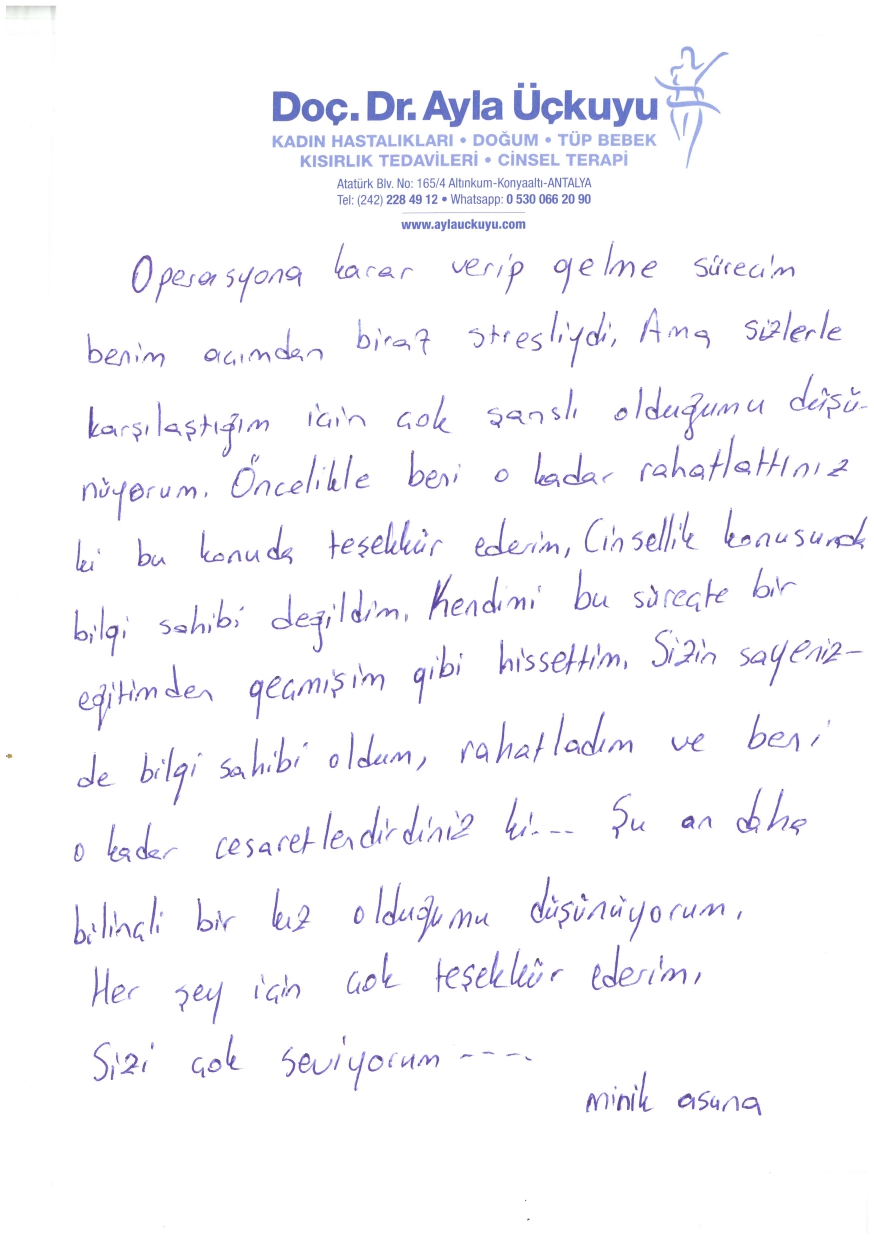 Doç. Dr. Ayla Üçkuyu
KADIN HASTALIKLARI • DOĞUM • TÜP BEBEK
KISIRLIK TEDAVİLERİ • CİNSEL TERAPİ
Atatürk Blv. No: 165/4 Altınkum-Konyaaltı-ANTALYA
Tel: (242) 228 49 12 • Whatsapp: 0 530 066 20 90
www.aylauckuyu.com
Operasyona karar verip gelme sürecim
benim açımdan biraz stresliydi. Ama sizlerle
karşılaştığım için çok şanslı olduğumu düşü-
nüyorum. Öncelikle beni o kadar rahatlattınız
ki bu konuda teşekkür ederim. Cinsellik konusunda
bilgi sahibi değildim. Kendimi bu süreçte bir
eğitimden geçmişim gibi hissettim. Sizin sayeniz-
de bilgi sahibi oldum, rahatladım ve beni
o kadar cesaretlendirdiniz ki---- Şu an daha
bilinçli bir kız olduğumu düşünüyorum.
Her şey için çok teşekkür ederim.
Sizi çok seviyorum ----.
minik asuna